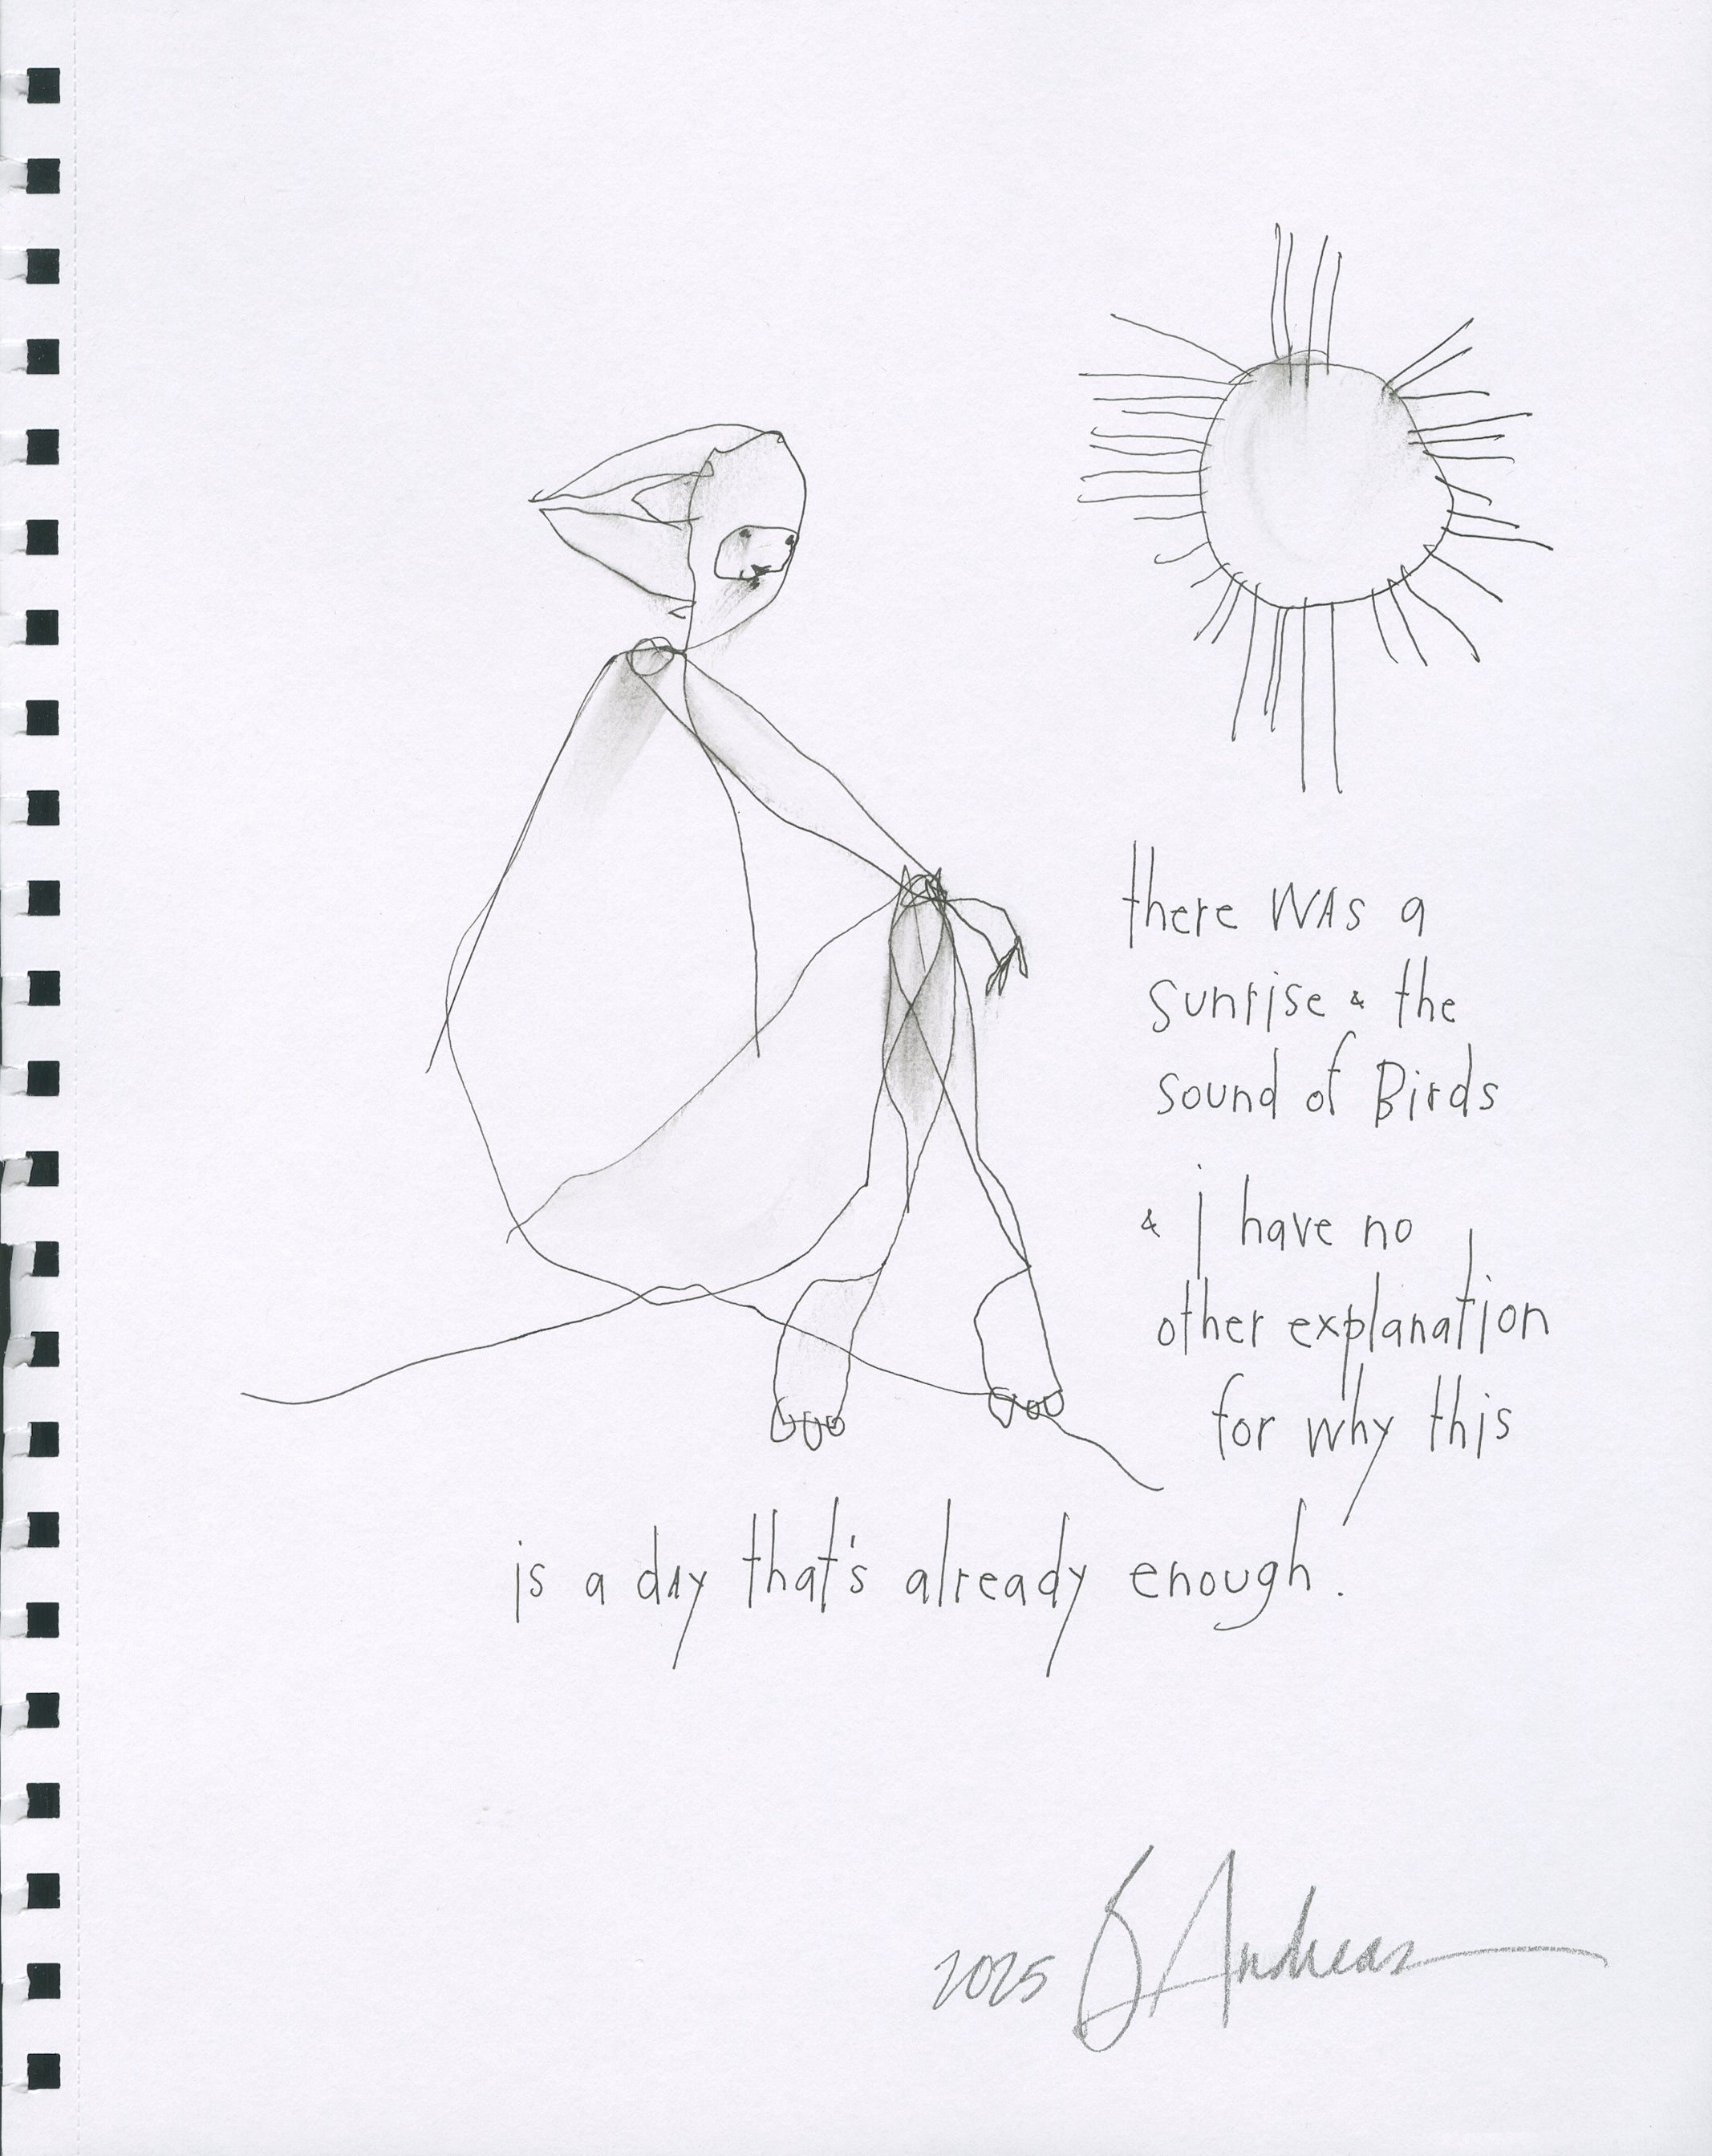 there WAS a
sunrise & the
sound of Birds
& i have no
other explanation
for why this
is a dAy that's already enough.
2025 S Andreas